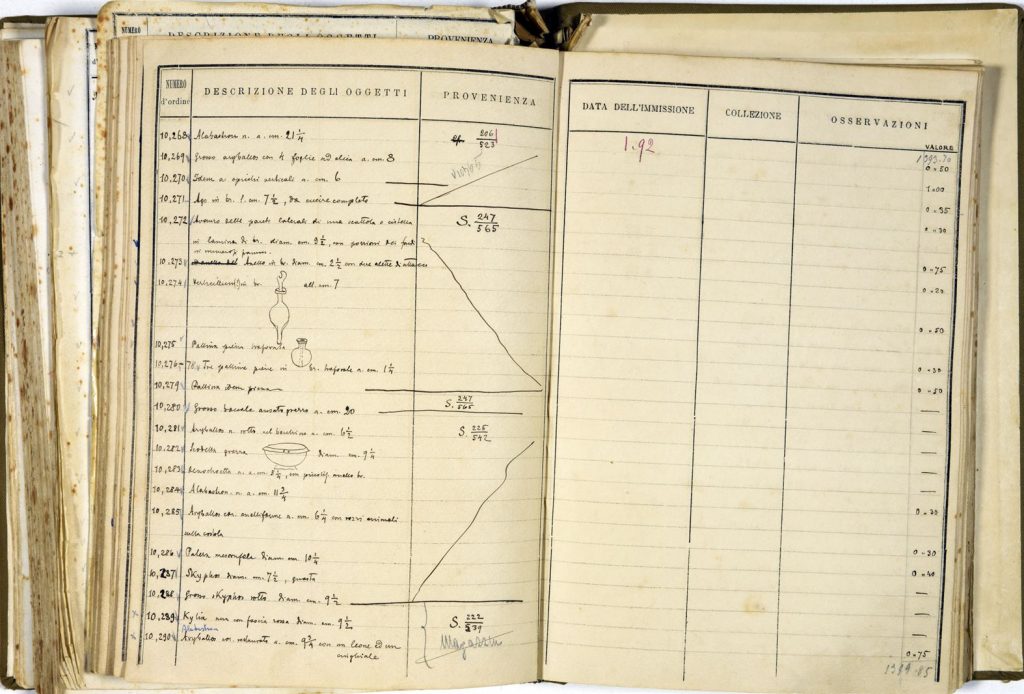 NUMERO DESCRIZIONE DEGLI OGGETTI PROVENIENZA
NUMERO d'ordine
DESCRIZIONE DEGLI OGGETTI
PROVENIENZA
10,268 Alabastron n. a. cm. 21 1/4
206/523
10,269 Grosso aryballos con 4 foglie ed elica a. cm. 8
10,270 Idem a spicchi verticali a. cm. 6
10,271 Ago in br. l. cm. 7 1/2, da cucire completo
10,272 Avanzo delle pareti laterali di una scattola o cistella
S. 247/565
in lamina di br. diam. cm. 9 1/2, con porzioni dei fondi
10,273 Anello in br. diam. cm. 2 1/2 con due alette d'attacco
10,274 in br. alt. cm. 7
10,275 Pallina piena traforata
10,276-78 Tre palline piene in br. traforate a. cm. 1 1/4
10,279 Pallina idem grezza
10,280 Grosso boccale ansato grezzo a. cm. 20
S. 247/565
10,281 Aryballos n. rotto nel bocchino a. cm. 6 1/2
S. 225/542
10,282 Scodella grezza diam. cm. 9 1/4
10,283 n. a. cm. 8 1/4, con anello br.
10,284 Alabastron n. a. cm. 11 3/4
10,285 Aryballos cor. anelliforme a. cm. 6 1/4 con rozzi animali
sulla costola
10,286 Patera mesonfala diam. cm. 10 1/4
10,287 Skyphos diam. cm. 7 1/2, guasta
10,288 Grosso skyphos rotto diam. cm. 9 1/2
10,289 Kylix nera con fascia rossa diam. cm. 9 1/2
S. 222/539
Alabastron
10,290 Aryballos cor. restaurato a. cm. 9 3/4 con un leone ed un
cinghiale
Magazzin
DATA DELL'IMMISSIONE
COLLEZIONE
OSSERVAZIONI
VALORE
1.92
1393.70
0=50
1=00
0=35
0=30
0=75
0=20
0=50
0=30
0=50
0=30
0=30
0=40
0=75
1399.85